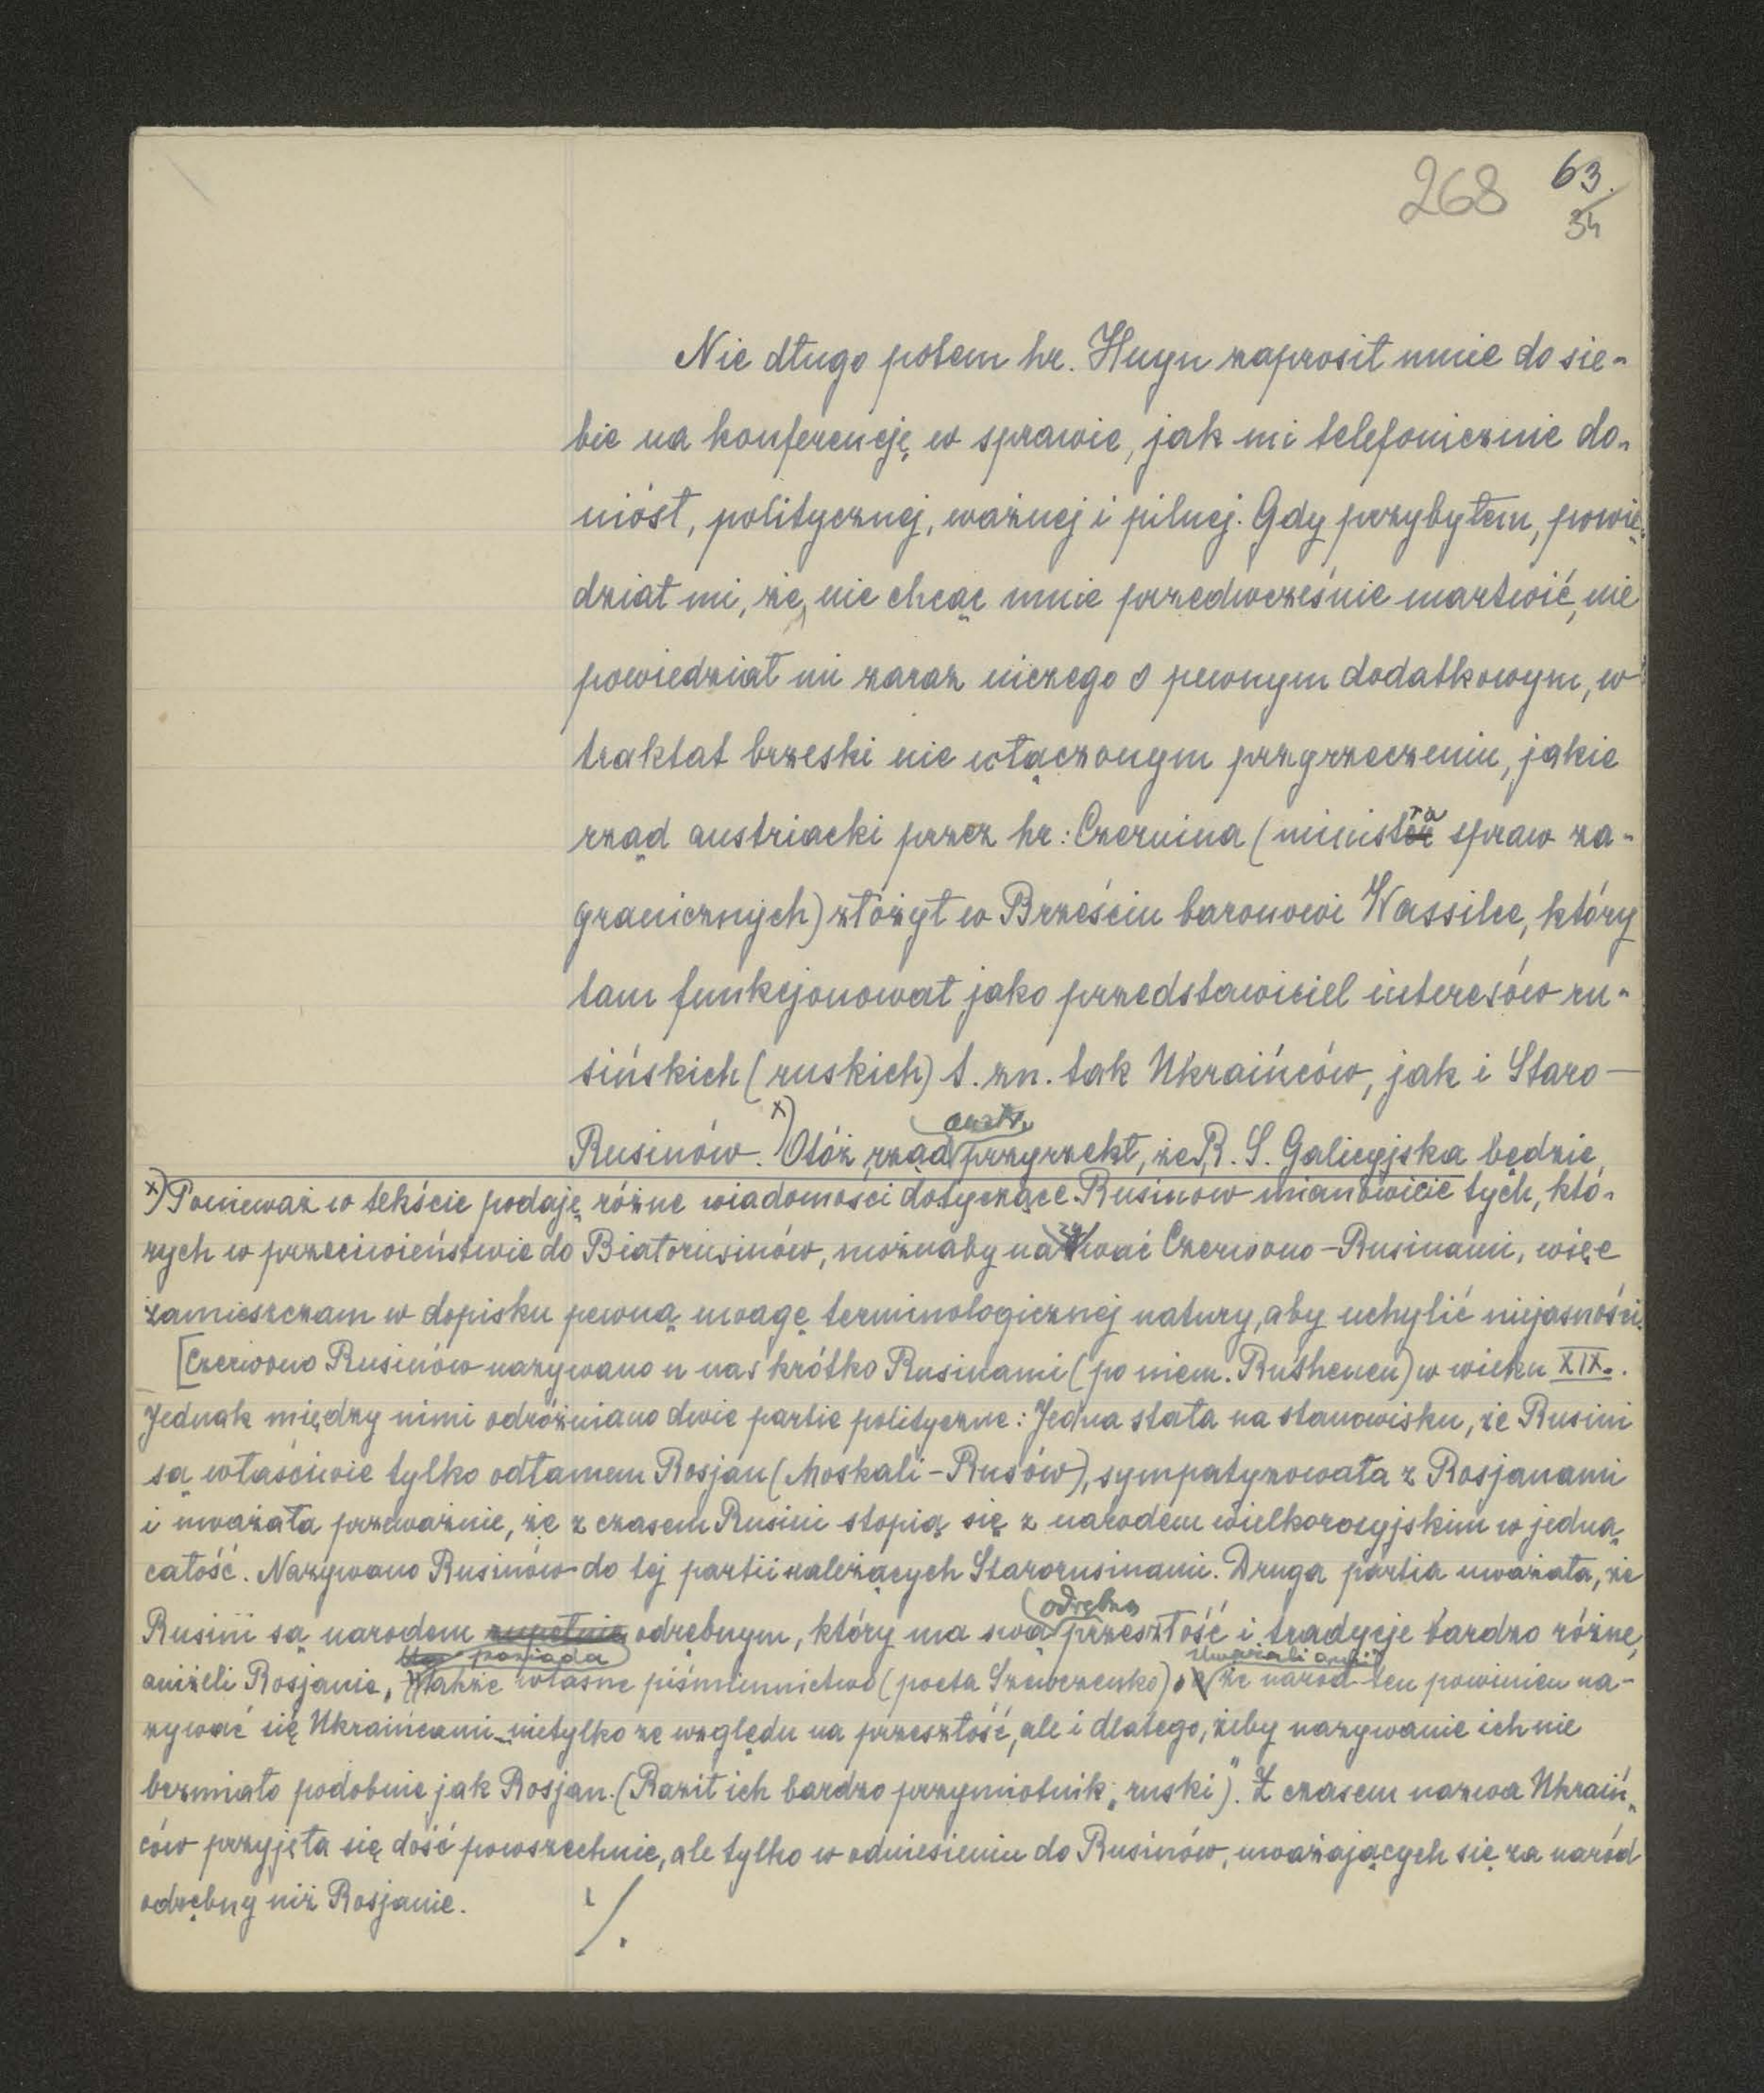 268 63.
34
Nie długo potem hr. Huyn zaprosił mnie do sie-
bie na konferencję w sprawie, jak mi telefonicznie do-
niósł, politycznej, ważnej i pilnej. Gdy przybyłem, powie-
dział mi, że, nie chcąc mnie przedwcześnie martwić, nie
powiedział mi zaraz niczego o pewnym dodatkowym, w
traktat brzeski nie włączonym przyrzeczeniu, jakie
rząd austriacki przez hr. Czernina (ministra spraw za-
granicznych) złożył w Brześciu baronowi Wassilce, który
tam funkcjonował jako przedstawiciel interesów ru-
sińskich (ruskich) t. zn. tak Ukraińców, jak i Staro-
Rusinów. x) Otóż rząd austr. przyrzekł, że R. S. Galicyjska będzie
x) Ponieważ w tekście podaję różne wiadomości dotyczące Rusinów mianowicie tych, któ-
rych w przeciwieństwie do Białorusinów, możnaby nazywać Czerwono-Rusinami, więc
zamieszczam w dopisku pewną uwagę terminologicznej natury, aby uchylić niejasności.
[Czerwono Rusinów nazywano u nas krótko Rusinami (po niem. Ruthenen) w wieku XIX.
Jednak między nimi odróżniano dwie partie polityczne: Jedna stała na stanowisku, że Rusini
są właściwie tylko odłamem Rosjan (Moskali-Rusów), sympatyzowała z Rosjanami
i uważała przeważnie, że z czasem Rusini stopią się z narodem wielkorosyjskim w jedną
całość. Nazywano Rusinów do tej partii należących Starorusinami. Druga partia uważała, że
Rusini są narodem zupełnie odrębnym, który ma swą odrębną przeszłość i tradycje bardzo różne,
aniżeli Rosjanie, posiada także własne piśmiennictwo (poeta Szewczenko). Uważali oni, że naród ten powinien na-
zywać się Ukraińcami nietylko ze względu na przeszłość, ale i dlatego, żeby nazywanie ich nie
brzmiało podobnie jak Rosjan. (Raził ich bardzo przymiotnik „ruski"). Z czasem nazwa Ukraiń-
ców przyjęła się dość powszechnie, ale tylko w odniesieniu do Rusinów, uważających się za naród
odrębny niż Rosjanie.
./.